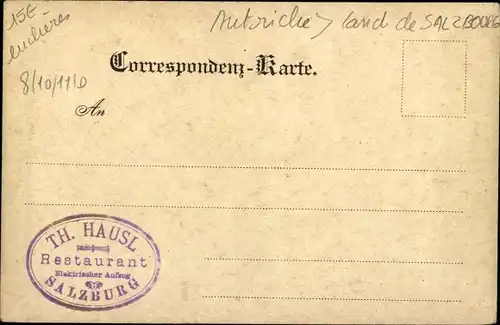 15E
enchères
8/10/11/D
Autriche > land de SALZBOURG
Correspondenz-Karte.
An
TH. HAUSL
Restaurant
Elektrischer Aufzug
SALZBURG